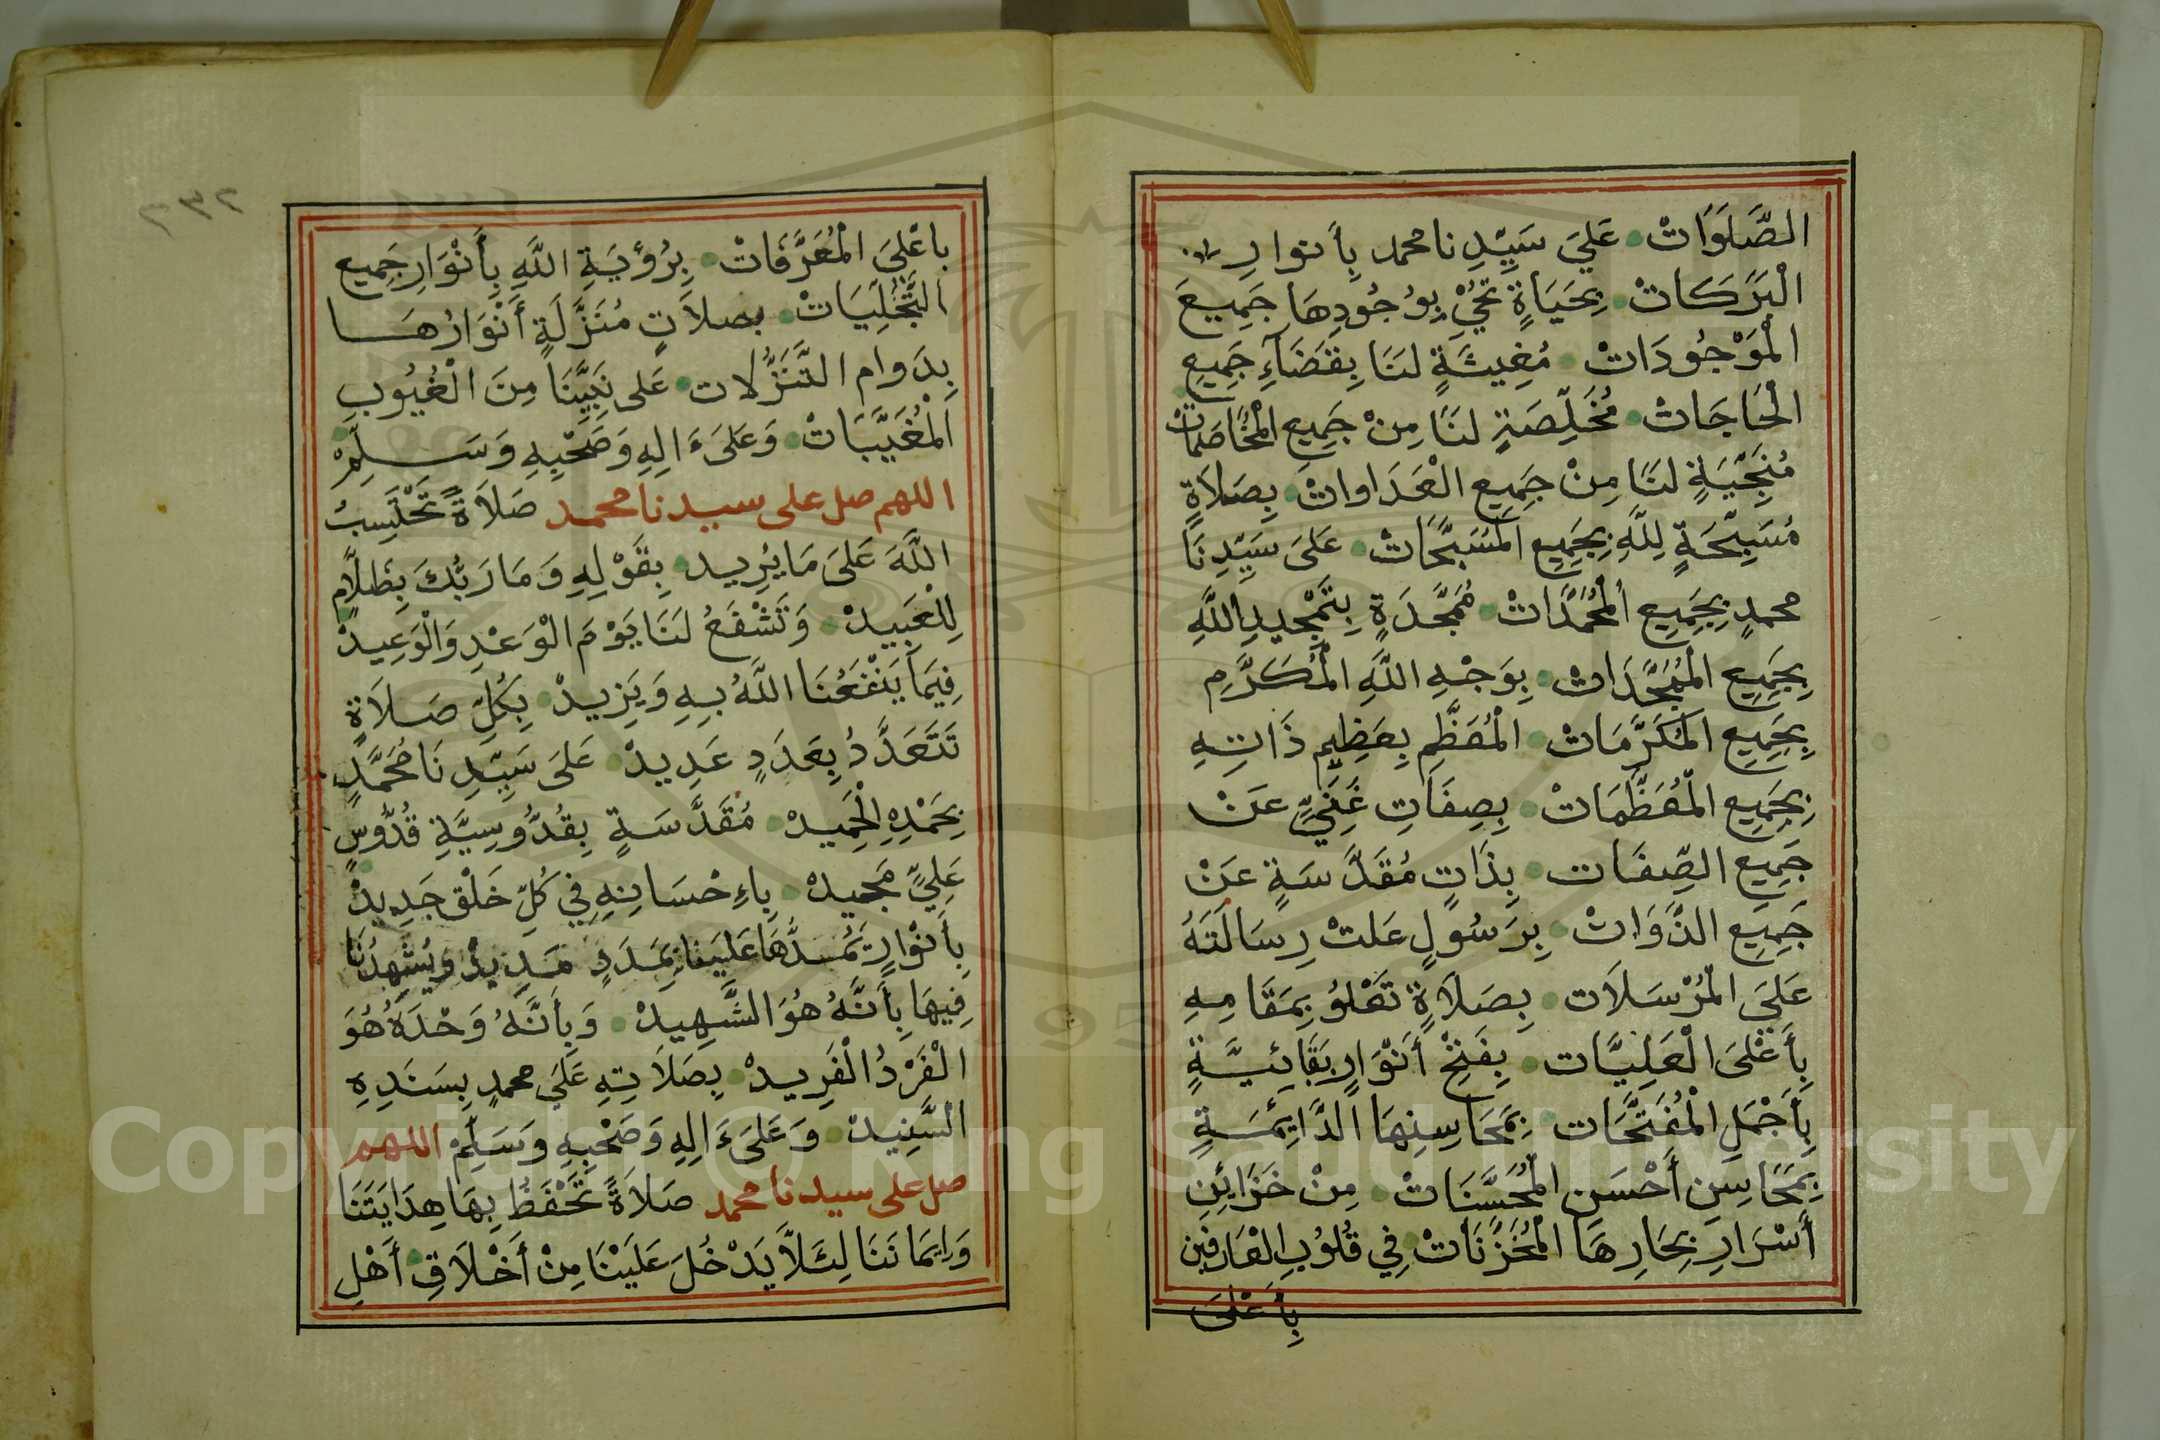 الصَّلَوَاتْ عَلَيَ سَيِّدِنا محمد بِأَنوارِ
الْبَرَكَاتْ بِحَيَاةٍ تَحْيُ بِوُجُودِهَا جَمِيعَ
الْمَوْجُودَاتْ مُغِيثَةٍ لَنَا بِقَضَآءِ جَمِيعِ
الْحَاجَاتْ مُخَلِّصَةٍ لَنَا مِنْ جَمِيعِ الْمُخَاصَمَاتْ
مُنَجِّيَةٍ لَنَا مِنْ جَمِيعِ الْعَدَاوَاتْ بِصَلاَةٍ
مُسَبِّحَةٍ لِلَّهِ بِجَمِيعِ الْمُسَبَّحَاتْ عَلَىَ سَيِّدِنَا
محمدٍ بِجَمِيعِ الْمُحَمَّدَاتْ مُمَجَّدَةٍ بِتَمْجِيدِ اللَّهِ
بِجَمِيعِ الْمُمَجَّدَاتْ بِوَجْهِ اللَّهِ الْمُكَرَّمِ
بِجَمِيعِ الْمُكَرَّمَاتْ الْمُعَظَّمِ بِعَظِيمِ ذَاتِهِ
بِجَمِيعِ الْمُعَظَّمَاتْ بِصِفَاتِ غَنِيٍّ عَنْ
جَمِيعِ الصِّفَات بِذَاتٍ مُقَدَّسَةٍ عَنْ
جَمِيعِ الذَّوَاتْ بِرَسُولٍ عَلَتْ رِسَالَتَهُ
عَلَيَ الْمُرْسَلاَت بِصَلاَةٍ تَعْلُوُ بِمَقَامِهِ
بِأَعْلَىَ الْعَلِيَّات بِفَتِحْ أَنْوَارٍ بَقَائِيَّةٍ
بِأَجْمَلِ الْمُفَتَّحَات بِمَحَاسِنِهَا الدَّايِمَةِ
بِمَحَاسِنِ أَحْسَنِ الْمُحَسَّنَاتْ مِنْ خَزَائِنِ
أَسْرَارِ بِحَارِهَا الْمُخَزَّنَاتْ فِي قُلُوُبِ الْعَارِفِينَ
بِأَعْلَىَ
بِاَعْلَىَ الْمُعَرَّفَاتْ بِرُؤيَةِ اللَّهِ بِأَنْوَارِ جَمِيعِ
التَّجَلِّيَاتْ بِصلاَتٍ مُنَزَّلَةٍ أَنْوَارُهَا
بِدَوام التَّنَزُّلات عَلى نَبِيَّنَا مِنَ الْغُيُوبِ
الْمُغَيَّبَاتْ وَعَلَىَءَالِهِ وَصَحْبِهِ وَسَلِّمْ
اللهم صل على سيدنا محمد صَلاَةً تَحْتَسِبُ
اللَّهَ عَلىَ مَا يُرِيد بِقَوْلِهِ وَمَا رَبُّكَ بِظَلاَّمٍ
لِلْعَبِيدْ وَتَشْفَعُ لَنَا يَوْمَ الْوَعْدِ وَالْوَعِيدْ
فِيمَآ يَنْفَعُنَا اللَّهُ بِهِ وَيَزِيدْ بِكُلِّ صَلاَةٍ
تَتَعَدَّدُ بِعَدَدٍ عَدِيدْ عَلَىَ سَيِّدِنَا مُحَمَّدٍ
بِحَمْدِهِ الْحَمِيدْ مُقَدَّسَةٍ بِقُدُّوسِيَّةِ قُدُّوسٍ
عَلِيٍّ مَجِيدْ بِاءِحْسَانِهِ فِي كُلِّ خَلْقٍ جَدِيدْ
بِأَنْوَارٍ تَمُدُّهَا عَلَيْنَا بِمَدَدٍ مَدِيدْ وَيُشْهِدُنَا
فِيهَا بِأَنَّهُ هُوَ الشَّهِيدْ وَبِأَنَّهُ وَحْدَهُ هُوَ
الْفَرْدُ الْفَرِيدْ بِصَلاَتِهِ عَلَيَ محمدٍ بِسَنَدِهِ
السَّنِيدْ وَعَلَىَءَالِهِ وَصَحْبِهِ وَسَلِّمْ اللهم
صل على سيدنا محمد صَلاَةً تَحْفَظُ بِهَا هِدَايَتَنَا
وَإِيمَانَنَا لِئَلاَّ يَدْخُلَ عَلَيْنَا مِنْ أَخْلاَقِ أَهْلِ
Copyright © King Saud University